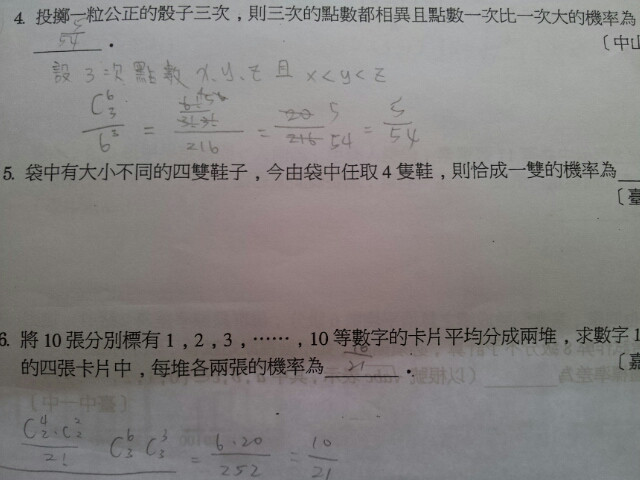 4. 投擲一粒公正的骰子三次，則三次的點數都相異且點數一次比一次大的機率為
5/54 .
〔中山
設 3 次點數 x, y, z 且 x < y < z
C^6_3 / 6^3 = 6!/3!3! / 216 = 20/216 5/54 = 5/54
5. 袋中有大小不同的四雙鞋子，今由袋中任取 4 隻鞋，則恰成一雙的機率為
〔臺
6. 將 10 張分別標有 1，2，3，……，10 等數字的卡片平均分成兩堆，求數字 1
的四張卡片中，每堆各兩張的機率為 10/21 .
〔嘉
C^4_2 · C^2_2 / 2! C^6_3 C^3_3 = 6·20 / 252 = 10/21